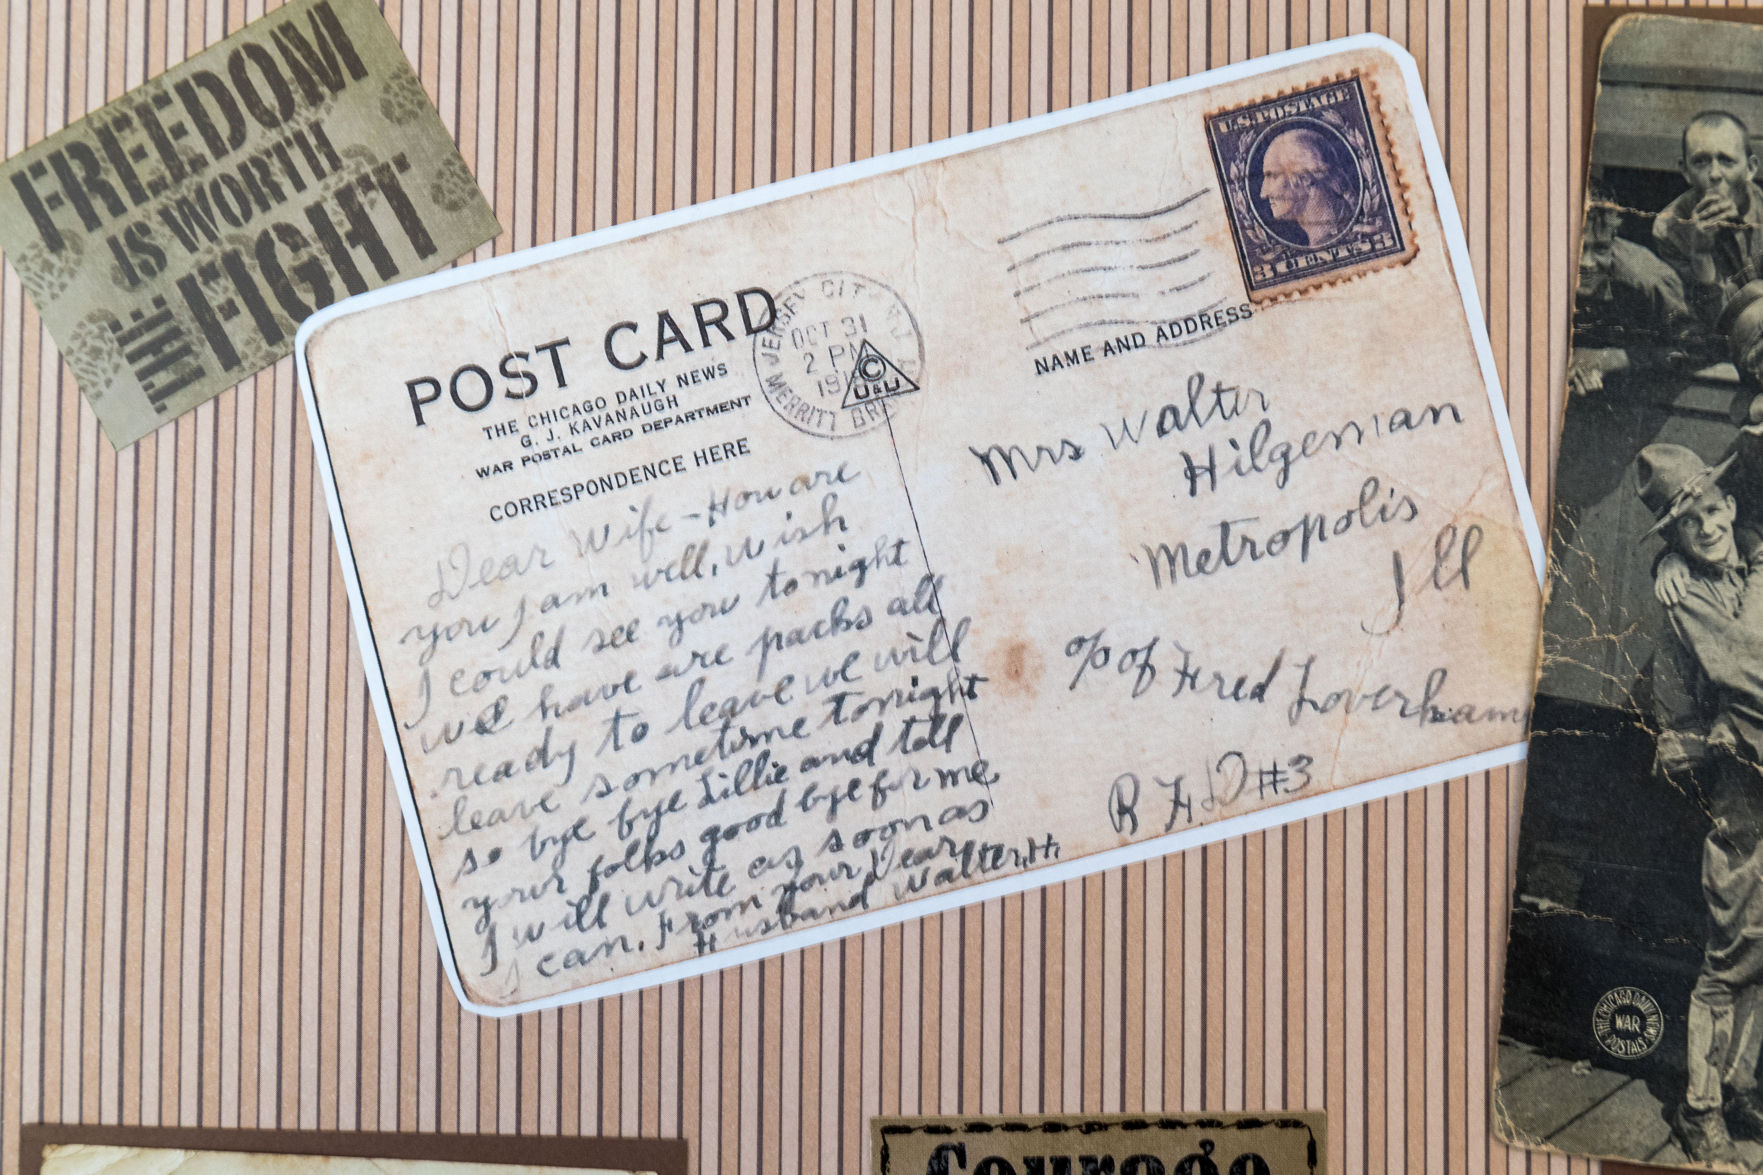 FREEDOM
IS WORTH
THE FIGHT
POST CARD
THE CHICAGO DAILY NEWS
G. J. KAVANAUGH
WAR POSTAL CARD DEPARTMENT
CORRESPONDENCE HERE
JERSEY CITY N.J.
OCT 31
2 PM
MERRITT
©
U&U
U.S. POSTAGE
3 CENTS 3
NAME AND ADDRESS
Dear Wife - How are
you I am well, wish
I could see you tonight
we have are packs all
ready to leave we will
leave sometime tonight
so bye bye Lillie and tell
your folks good bye for me
I will write as soon as
I can. From your Dear
Husband Walter, H.
Mrs Walter
Hilgeman
Metropolis
Ill
c/o of Fred Loverkamp
R F D #3
THE CHICAGO DAILY NEWS
WAR
POSTALS
Courage